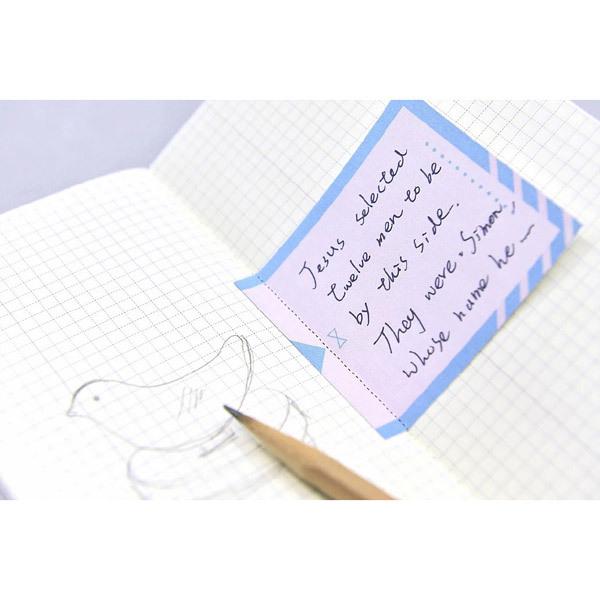 Jesus selected
twelve men to be
by this side.
They were. Simon,
whose name he —